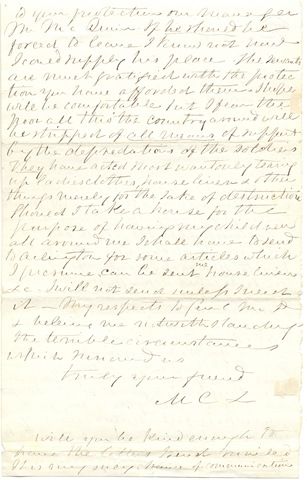 to your protection our manager
Mr Mc Quin. If he should be
forced to leave I know not how
I could supply his place. The servants
are much gratified with the protection
you have afforded them & hope
will be comfortable but I fear the
poor all thro the country around will
be stripped of all means of support
by the depredations of the soldiers
They have acted most wantonly tearing
up ladies clothes, house linen & other
things merely for the sake of destruction
Should I take a house for the
purpose of having my children
all around me I shall have to send
to Arlington for some articles which
I presume can be sent me house linen
&c. I will not send unless I need
it — My respects to Genl
& believe me notwithstanding
the terrible circumstances
which surround us
truly your friend
M C L
Will you be kind enough to
have the letters
this my only chance of communication